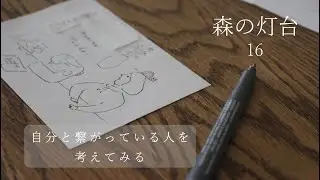 森の灯台
16
自分と繋がっている人を
考えてみる